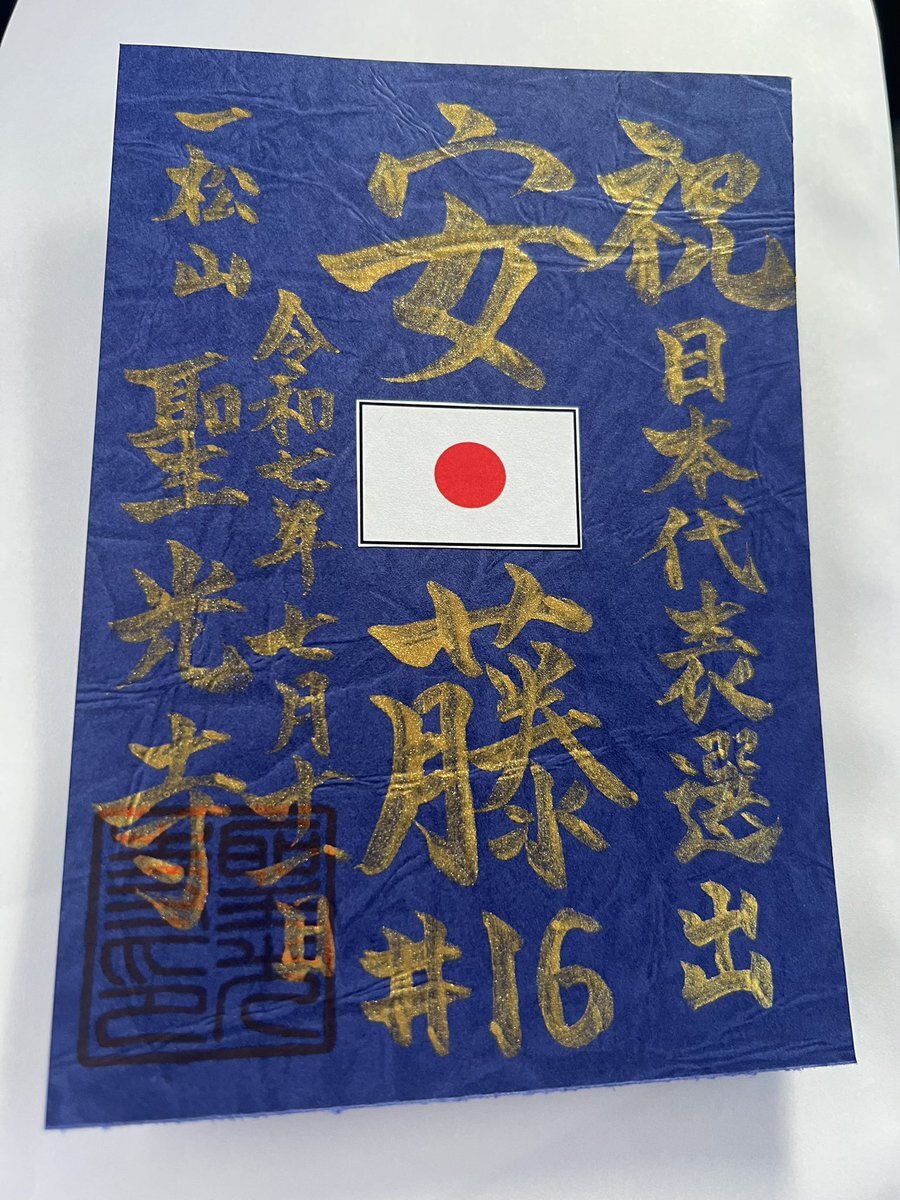 祝 日本代表選出
安藤 #16
令和七年七月
一松山 聖光寺